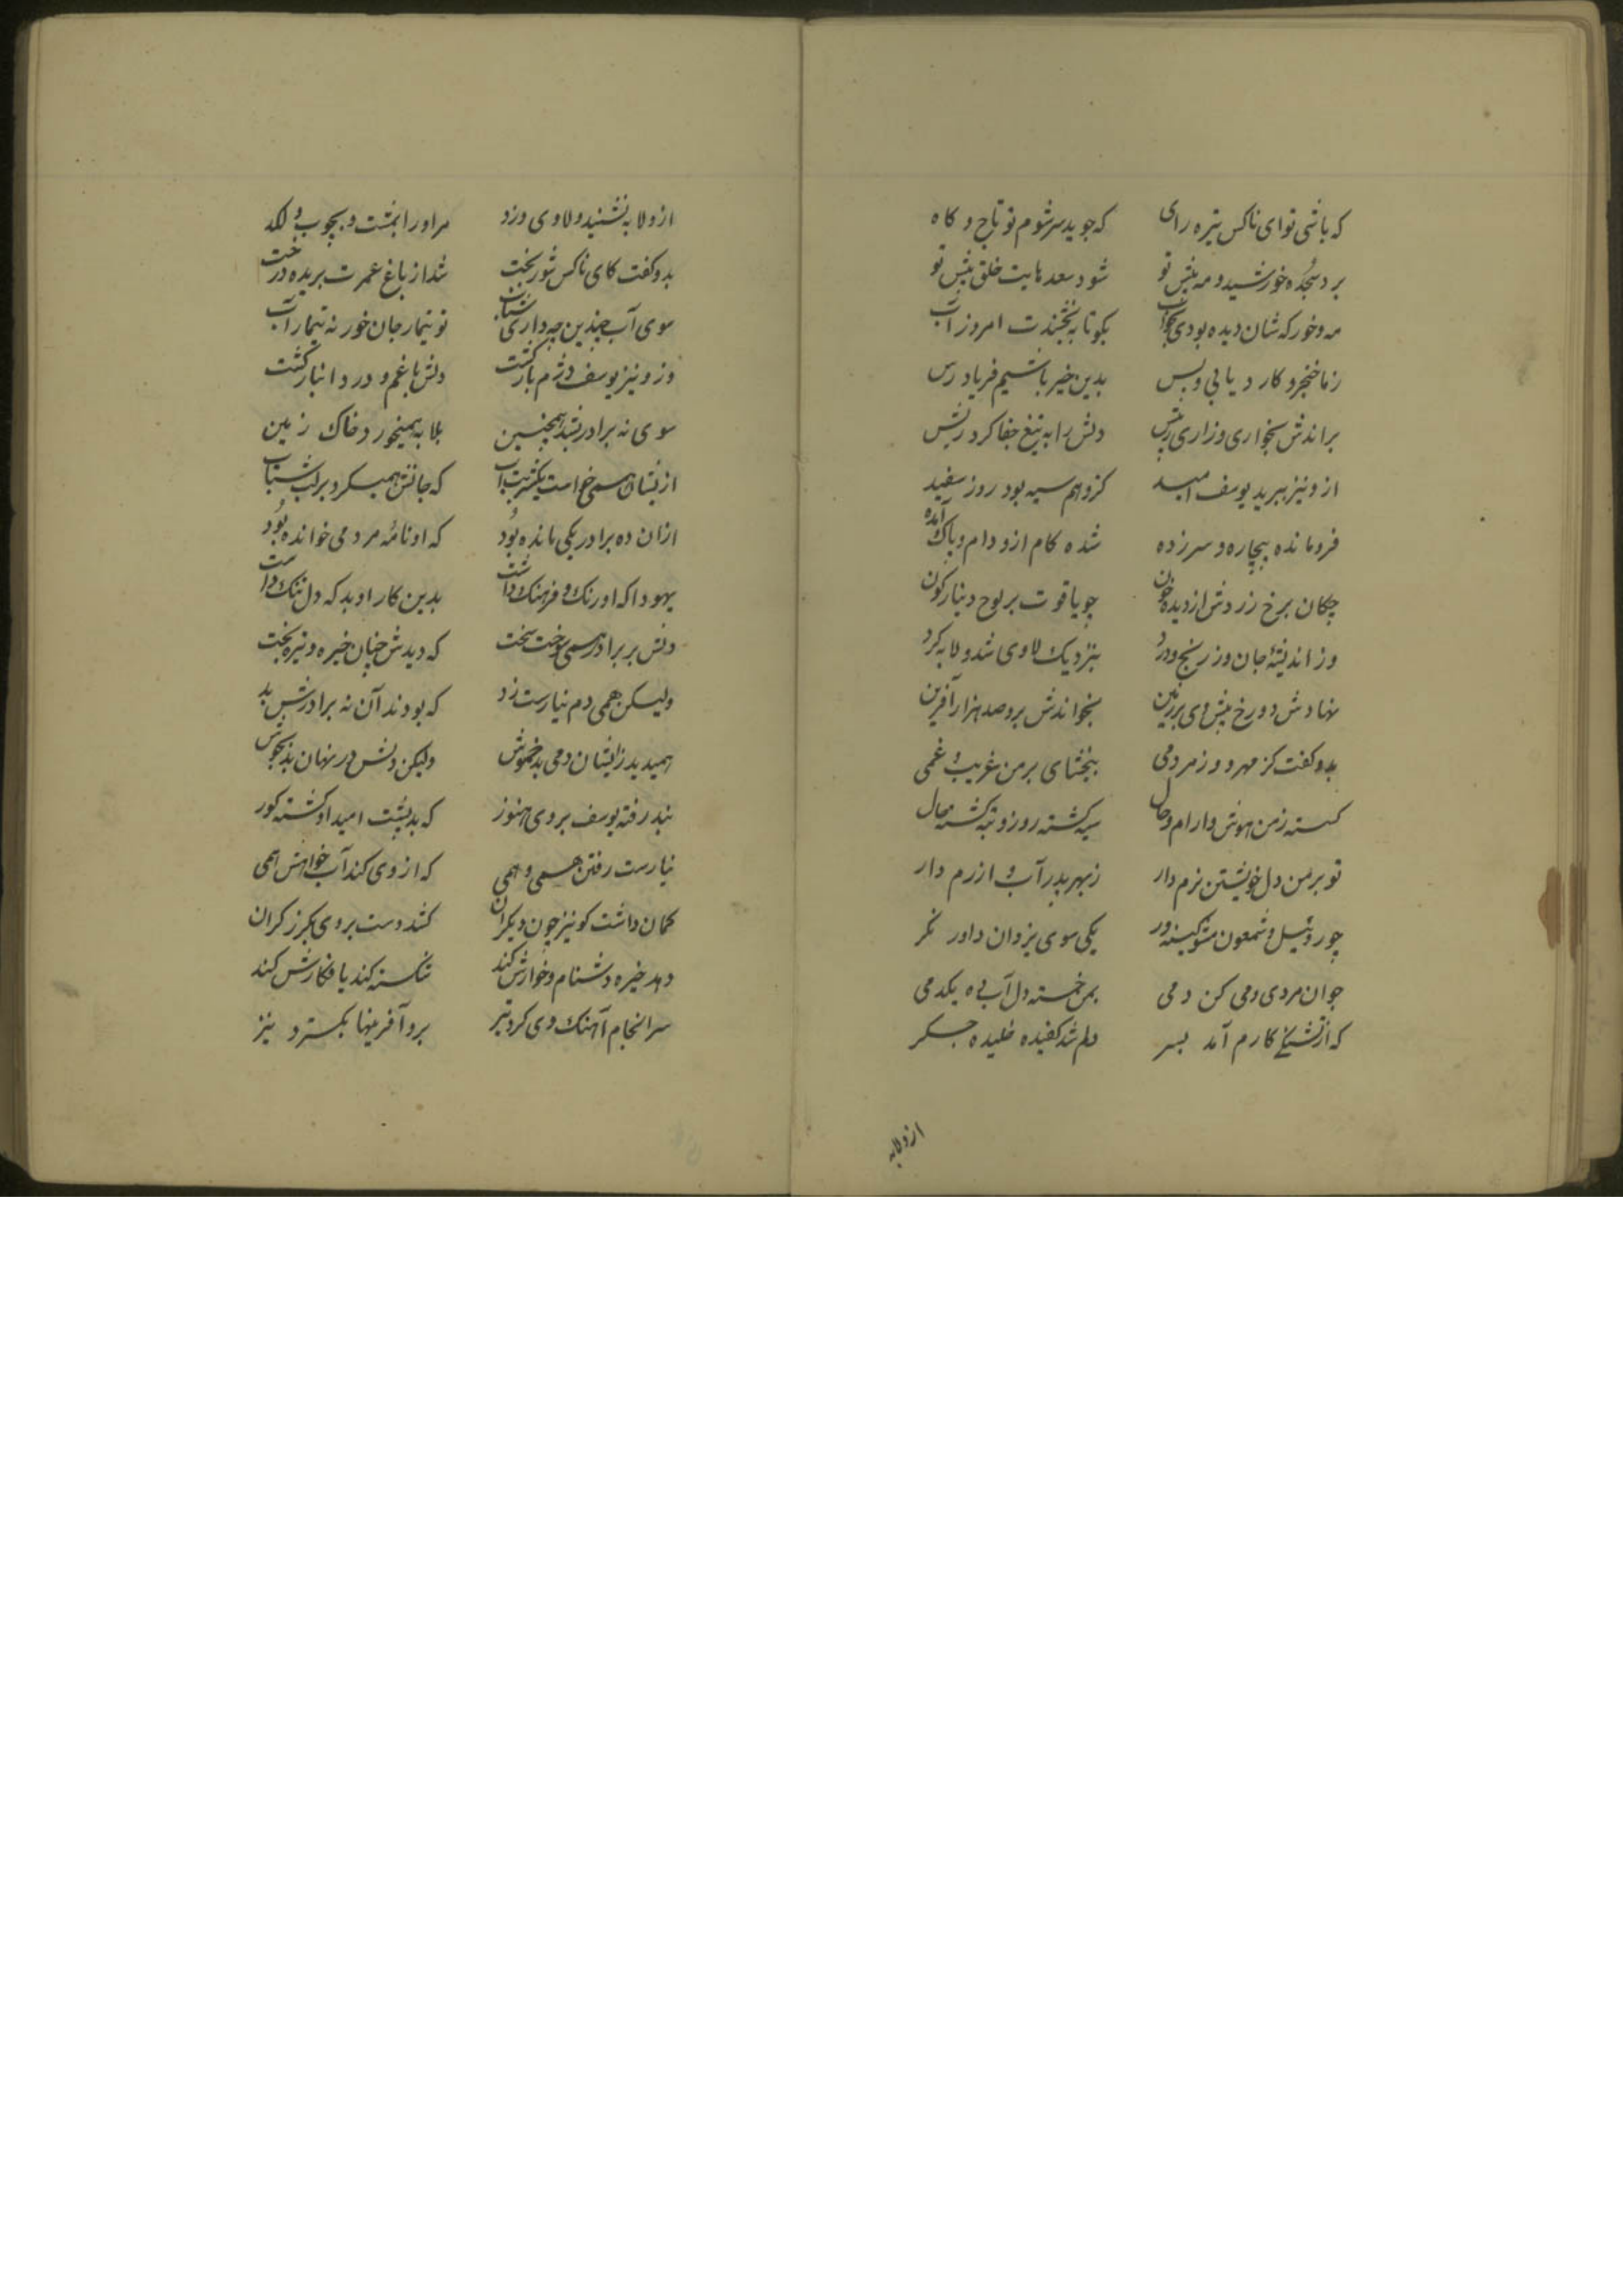 که باشی تو ای ناکس تیره رای که جوید سر شوم تو تاج و کاه
برد سجده خورشید و مه پیش تو شود سعد هایت خلق پیش تو
مه و خور که شان دیده بودی بخواب بکو تا ببخشندت امروز آب
ز ما خنجر و کارد یابی و بس بدین خیر باشیم فریاد رس
براندش بخواری و زاری ز پیش دلش را به تیغ جفا کرد ریش
ازو نیز ببرید یوسف امید کزو هم سیه بود روز سفید
فرومانده بیچاره و سر زده شده کام ازو دام و باک آمده
چکان بر رخ زردش از دیده خون چو یاقوت بر لوح دینار کون
وز اندیشهٔ جان وز رنج و درد بنزدیک لاوی شد و لابه کرد
نهادش دو رخ پیش وی بر زمین بخواندش برو صد هزار آفرین
بدو کفت کز مهر و وز مردمی ببخشای بر من غریب و غمی
کسسته ز من هوش و ارام و حال سیه کشته روز و تبه کشته حال
تو بر من دل خویشتن نرم دار ز بهر پدر آب و ازرم دار
چو روئیل و شمعون مشو کینه ور یکی سوی یزدان داور نکر
جوان مردی ومی کن دمی بمن خسته دل آب ده یکدمی
که از تشنکی کارم آمد بسر دلم شد کفیده خلیده جسکر
ازو لابه
ازو لابه نشنید و لاوی وزد مر او را بمشت و بچوب و لکد
بدو کفت کای ناکس شوربخت شد از باغ عمرت بریده درخت
سوی آب چندین چه داری شتاب تو تیمار جان خور نه تیمار آب
وزو نیز یوسف دژم باز کشت دلش با غم و درد انباز کشت
سوی نه برادر بشد همچنین بلابه همیخورد خاک زمین
ازیشان همی خواست یکشربت آب که جانش همیکرد بر لب شتاب
ازان ده برادر یکی مانده بُود که او نامهٔ مردمی خوانده بُود
یهودا که اورنک و فرهنک داشت بدین کار او بد که دل تنک داشت
دلش بر برادر همی سوخت سخت که دیدش چنان خیره و تیره بخت
ولیسکن همی دم نیارست زد که بودند آن نه برادرش بد
همیدید زایشان دمی بد خموش ولیکن دلش در نهان بد بجوش
نبد رفته یوسف بر وی هنوز که بد پشت امید او کشته کوز
نیارست رفتن همی و همی که از وی کند آب خواهش همی
کمان داشت کو نیز چون دیکران کشد دست بر وی بکرز کران
دهد خیره دشنام و خوارش کند شکسته کند یا فکارش کند
سرانجام آهنک وی کرد تیز برو آفرینها بکسترد نیز